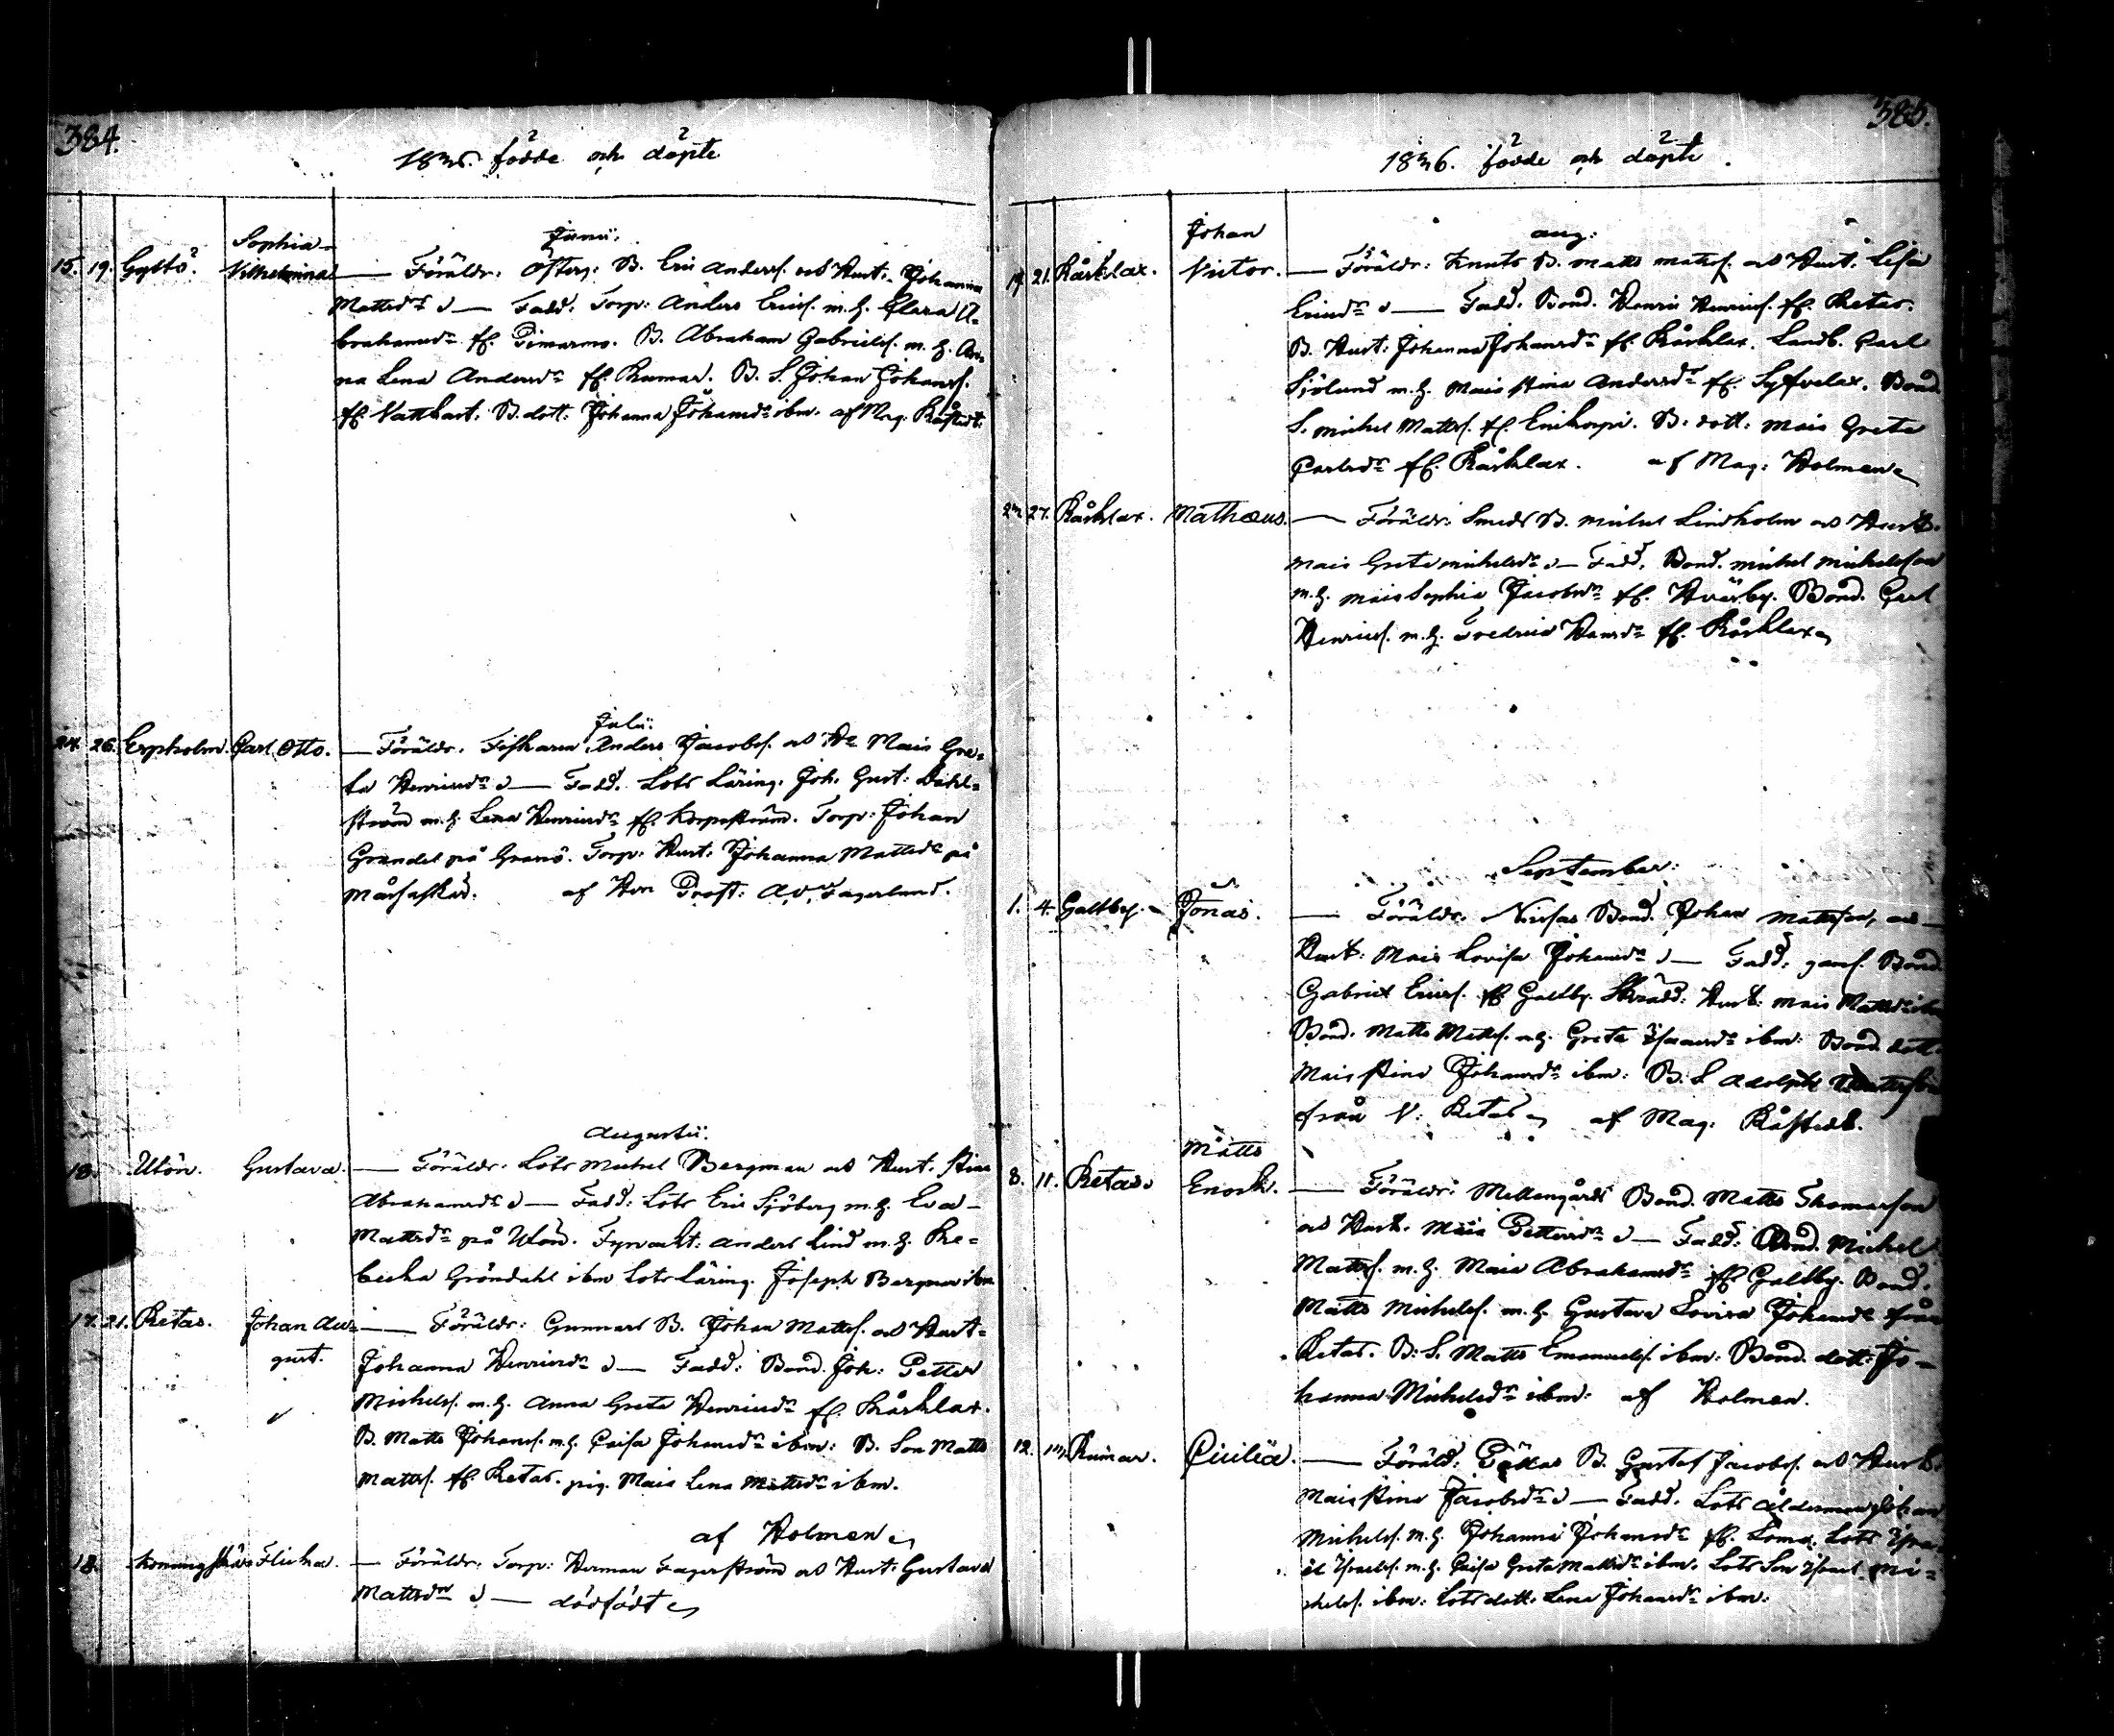 384.
1836. födde och döpte
Junii.
15. 19. Gyltö. Sophia
Vilhelmina — Föräldr: Österg: B. Eric Anders. och Hust: Johanna
Mattsdr — Fadd: Torp: Anders Erics. m.h. Clara A-
brahamsdr fr. Pimarno. B. Abraham Gabriels. m. h. An-
na Lena Andersdr fr. Rumar. B. S. Johan Johans.
fr. Vattkast. B. dott: Johanna Johansdr ibm. af Mag. Råstedt.
Julii.
24. 26. Erpholm. Carl Otto. — Föräldr. Fiskaren Anders Jacobs. och H. Mais Gre-
ta Henricsdr — Fadd. Lots Läring. Joh. Gust: Dahl-
ström m.h. Lena Henricsdr fr. Korpoström. Torp: Johan
Grandel på Granö. Torp: Hust: Johanna Mattsdr på
af Herr Prost: A. v. Fagerlund.
Augustii.
13. Utön. Gustava. — Föräldr. Lots Michel Bergman och Hust. Stina
Abrahamsdr — Fadd: Lots Eric Sjöberg m.h. Eva
Mattsdr på Utön. Fyrvakt: Anders Lind m.h. Re-
becka Gröndahl ibm Lots Läring. Joseph Bergman ibm
17. 21. Retas. Johan Au- — Föräldr: Gunnars B. Johan Matts. och Hust-
gust. Johanna Henricsdr — Fadd: Bond. Joh: Petter
Michels. m.h. Anna Greta Henricsdr fr. Kårklax.
B. Matts Johans. m.h. Caisa Johansdr ibm: B. Son Matts
Matts. fr. Retas. pig. Maia Lena Mattsdr ibm.
af Holmen
18. Flicka. — Föräldr. Torp: Herman Fagerström och Hust: Gustava
Mattsdr — dödfödt
385.
1836. födde och döpte.
Aug:
19. 21. Kårklax. Johan
Victor. — Föräldr: Knuts B. Matts Mats. och Hust: Lisa
Ericsdr — Fadd. Bond. Henric Henrics. fr. Retas.
B. Hust: Johanna Johansdr fr. Kårklax. Landb. Carl
Sjölund m.h. Maia Stina Andersdr fr. Syfvelax. Bond.
S. Michel Matts. fr. B. dott. Maia Greta
Carlsdr fr. Kårklax. af Mag: Holmen
27. Kårklax. Mathæus. — Föräldr: Smeds B. Michel Lindholm och Hust.
Maia Greta Michelsdr — Fadd. Bond. Michel Michelsson
m.h. Maia Sophia Jacobsdr fr. Bond. Carl
Henrics. m.h. Fredrica Hansdr fr. Kårklax
September:
1. 4. Galtby. Jonas. — Föräldr. Bond. Johan Mattsson, och
Hust: Maia Lovisa Johansdr — Fadd: Bond
Gabriel Erics. fr. Galtby. Skrädd: Hust: Maia Mattsdr ibm
Bond. Matts Matts. m.h. Greta Isaacsdr ibm: Bond. dott.
Maia Stina Johansdr ibm: B. S. Adolph
från V. Retas af Mag. Råstedt.
8. 11. Retas. Matts
Enock. — Föräldr: Mellangårds Bond. Matts Thomasson
och Hust. Maia Pettersdr — Fadd: Bond. Michel
Matts. m.h. Maia Abrahamsdr fr. Galtby. Bond.
Matts Michels. m.h. Gustava Lovisa Johansdr från
Retas. B. S. Matts Emanuels. ibm: Bond. dott: Jo-
hanna Michelsdr ibm: af Holmen.
12. Rumar. Cicilia. — Föräld: B. Gustaf Jacobs. och Hust.
Maia Stina Jacobsdr — Fadd. Lots Ålderman Johan
Michels. m.h. Johanna Johansdr fr. Loma. Lots Isra-
el Israels. m.h. Caisa Greta Mattsdr ibm. Lots Son Israel Mi-
chels. ibm: Lots dott. Lena Johansdr ibm: